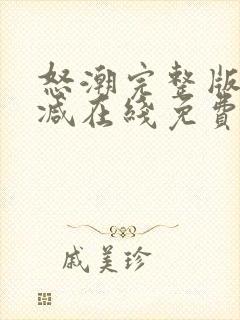 怒潮完整版
减在线免費
戚美珍